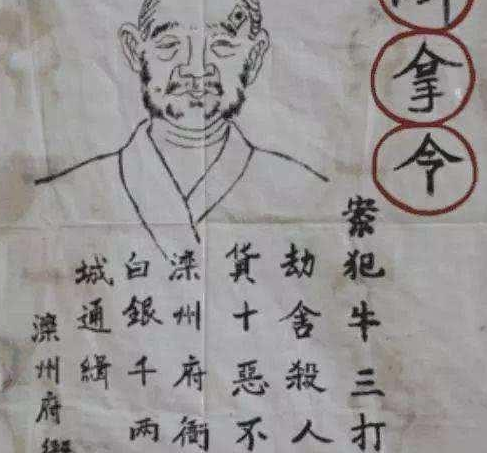 拿令
案犯牛三打
劫舍殺人
貨十惡不
滦州府衙
白銀千两
城通緝
滦州府